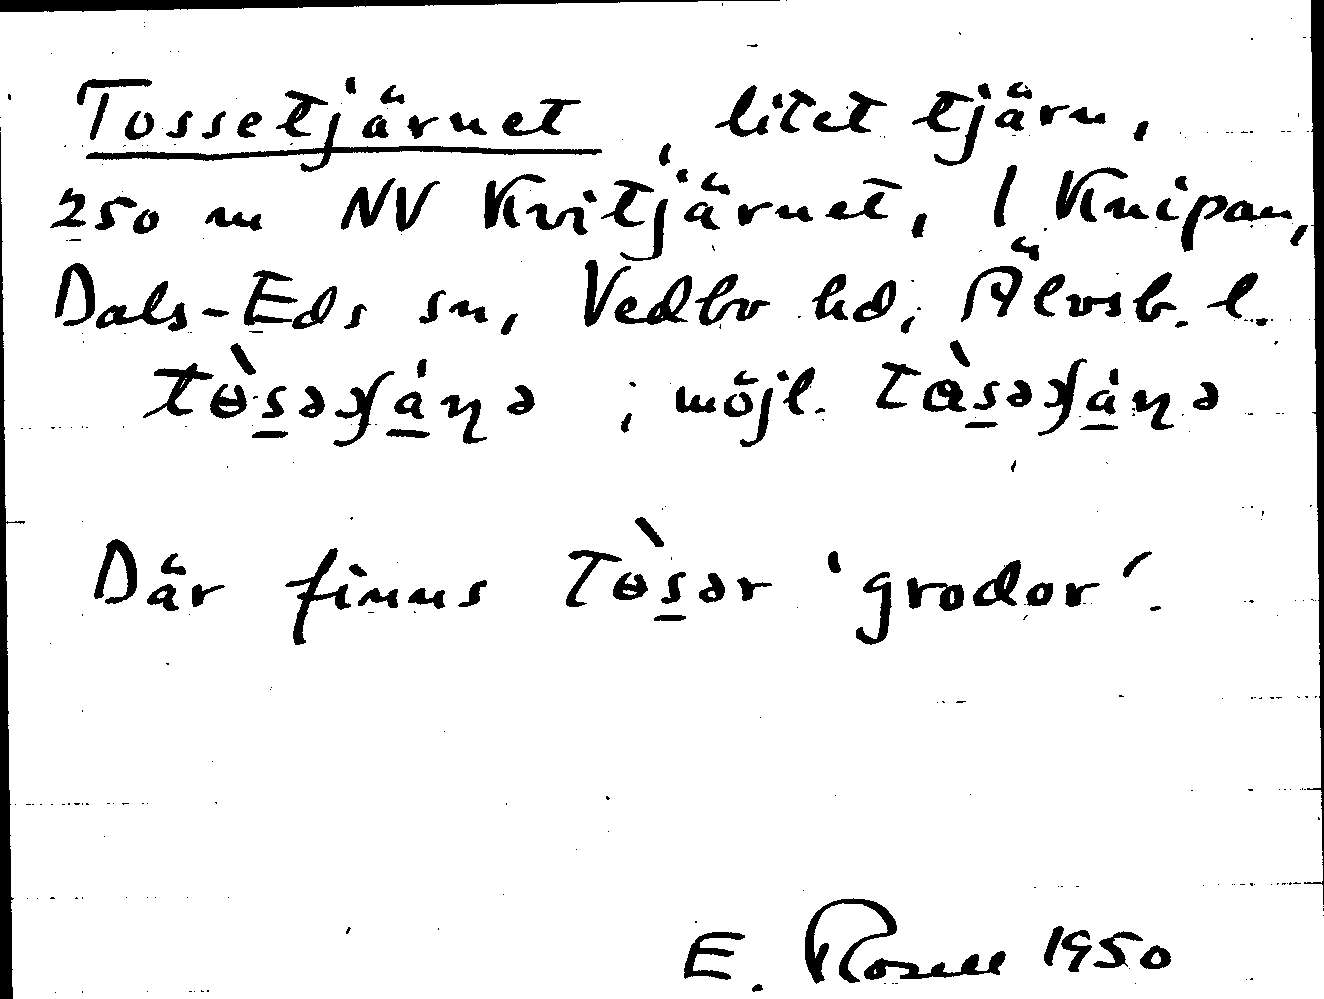 Tossetjärnet, litet tjärn,
250 m NV Kvitjärnet, l Knipan,
Dals-Eds sn, Vedbo hd, Älvsb. l.
tɵ̀s̲əʂá̲ɳə ; möjl. tɑ̀s̲əʂá̲ɳə
Där finns tɵ̀s̲ər 'grodor'.
E. Rosell 1950